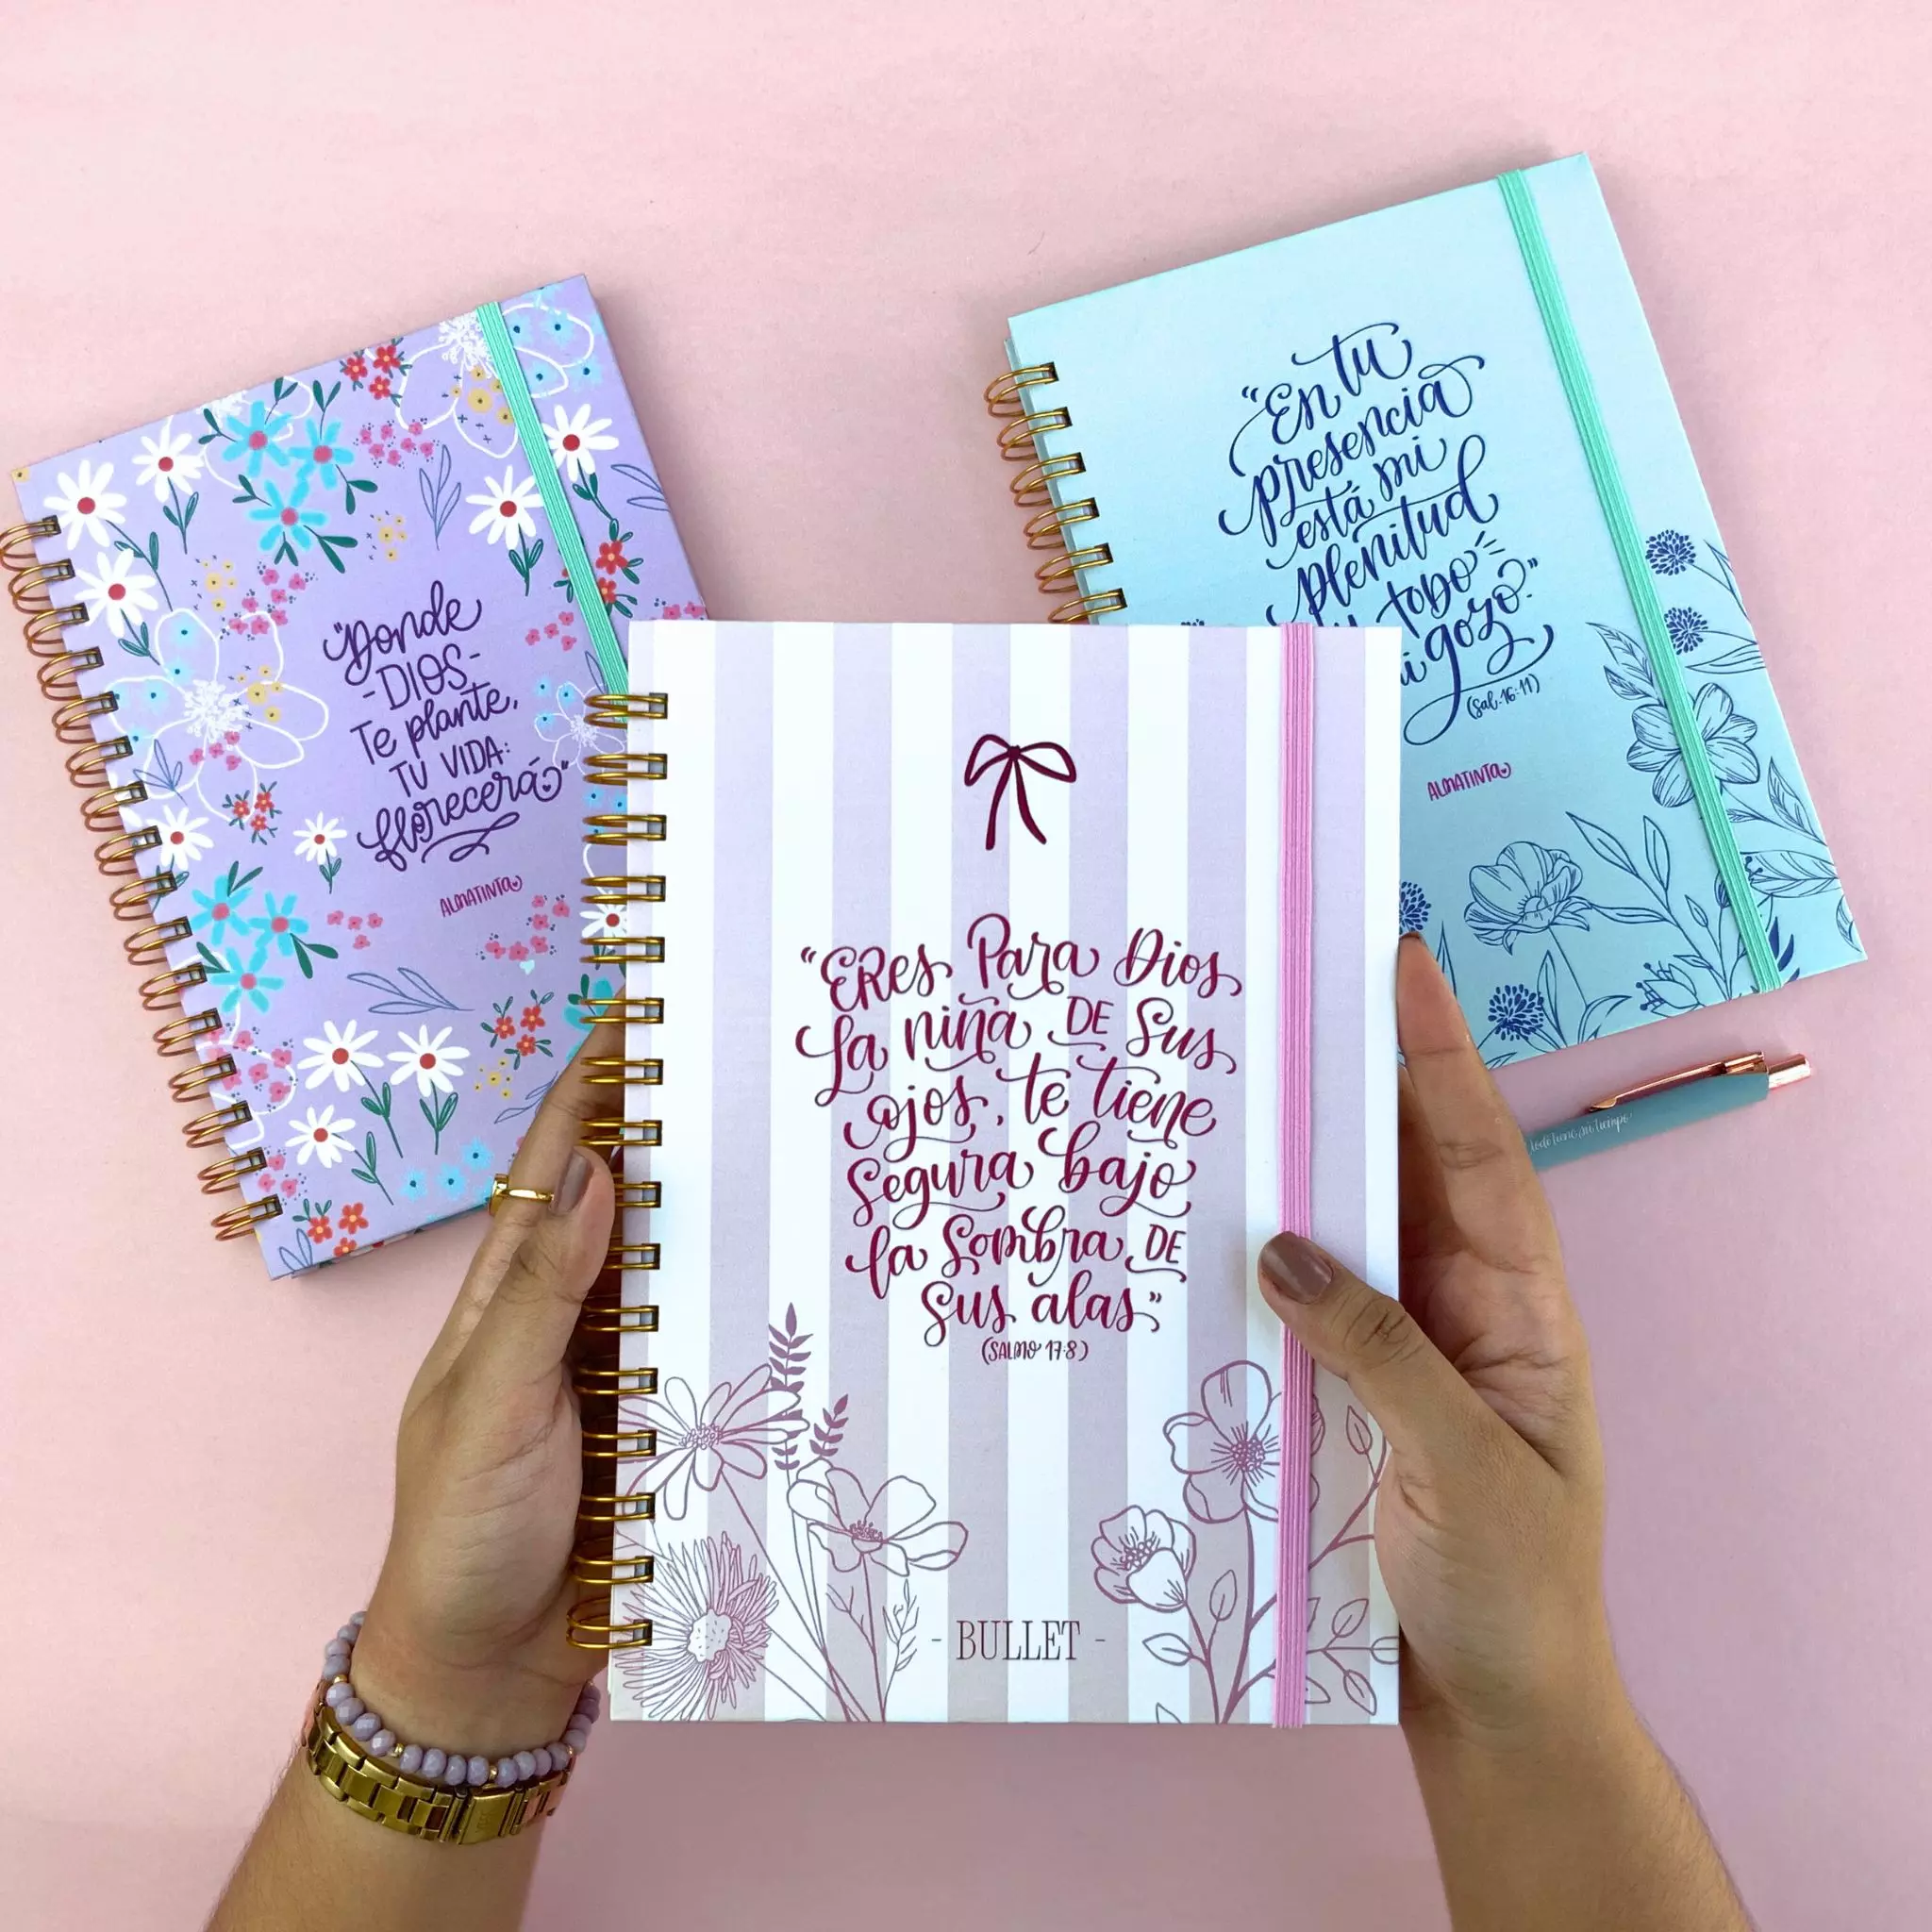 "Donde
-DIOS-
Te plante,
TU VIDA
florecerá"
ALMATINTA
"En tu
presencia
está mi
plenitud
todo
gozo."
(Sal. 16:11)
ALMATINTA
"Eres Para Dios
La niña DE Sus
ojos, te tiene
Segura bajo
la Sombra DE
Sus alas"
(SALMO 17:8)
- BULLET -
todo tiene su tiempo